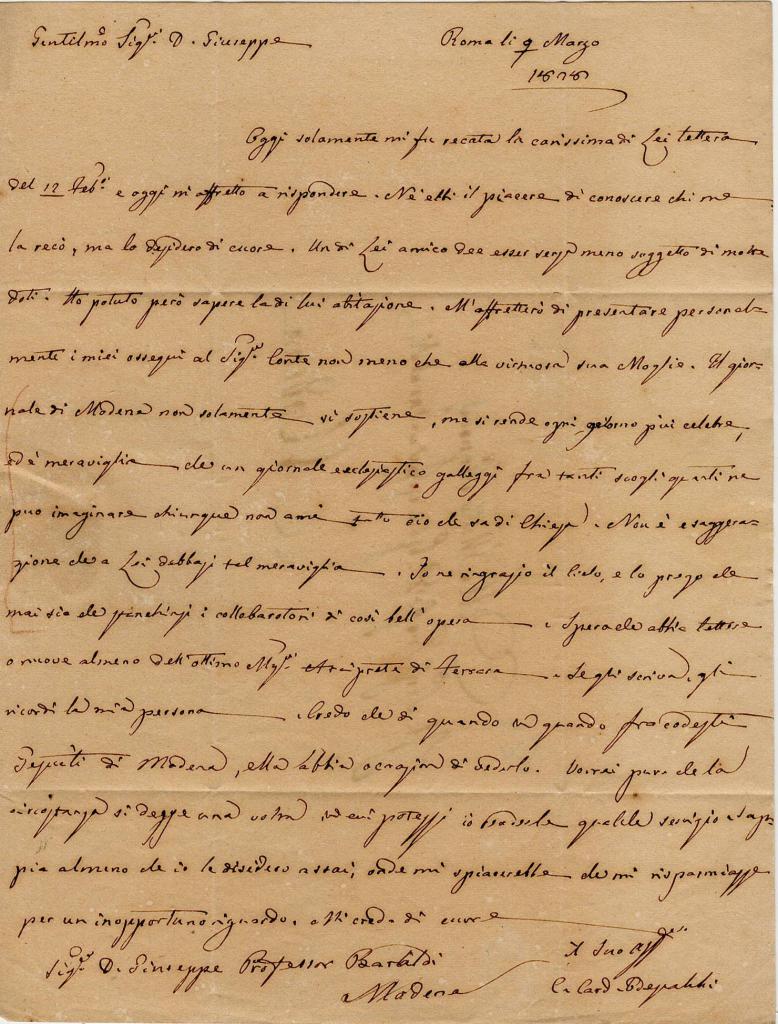 Gentilmo Sigr. D. Giuseppe
Roma li 9 Marzo
1828
Oggi solamente mi fu recata la carissima di Lei lettera
del 12 Feb. e oggi mi affretto a rispondere. Nè ebbi il piacere di conoscere chi me
la recò, ma lo desidero di cuore. Un di Lei amico dee esser senza meno soggetto di molte
doti. Ho potuto però sapere la di lui abitazione. M'affretterò di presentare personal-
mente i miei ossequi al Sigr. Conte non meno che alla virtuosa sua Moglie. Il gior-
nale di Modena non solamente si sostiene, ma si rende ogni giorno più celebre,
ed è meraviglia che un giornale ecclesiastico galleggi fra tanti scogli quanti ne
può imaginare chiunque non ami tutto ciò che sa di Chiesa. Non è esaggera-
zione che a Lei debbasi tal meraviglia. Io ne ringrazio il Cielo, e lo prego che
mai sia che i collaboratori di così bell'opera. Spero che abbia lettere
o nuove almeno dell'ottimo Mgr. Arciprete di Ferrara. Se gli scriva, gli
ricordi la mia persona. Credo che di quando in quando fra codesti
Gesuiti di Modena, ella abbia occasione di vederlo. Vorrei pure che la
circostanza si desse una volta in cui potessi io qualche servigio e sap-
pia almeno che io lo desidero assai, onde mi spiacerebbe che mi risparmiasse
per un inopportuno riguardo. Mi creda di cuore
Sigr. D. Giuseppe Professor Baraldi
Modena
Il Suo aff
C. Card. Odescalchi